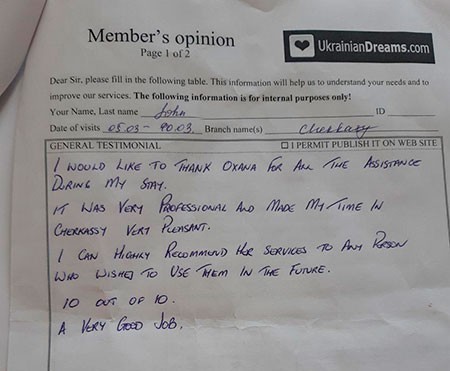 Member's opinion
Page 1 of 2
UkrainianDreams.com
Dear Sir, please fill in the following table. This information will help us to understand your needs and to
improve our services. The following information is for internal purposes only!
Your Name, Last name John ID
Date of visits 05.03 - 90.03. Branch name(s) Cherkasy
GENERAL TESTIMONIAL ☐ I PERMIT PUBLISH IT ON WEB SITE
I WOULD LIKE TO THANK OXANA FOR ALL THE ASSISTANCE
DURING MY STAY.
IT WAS VERY PROFESSIONAL AND MADE MY TIME IN
CHERKASSY VERY PLEASANT.
I CAN HIGHLY RECOMMEND HER SERVICES TO ANY PERSON
WHO WISHES TO USE THEM IN THE FUTURE.
10 OUT OF 10.
A VERY GOOD JOB.